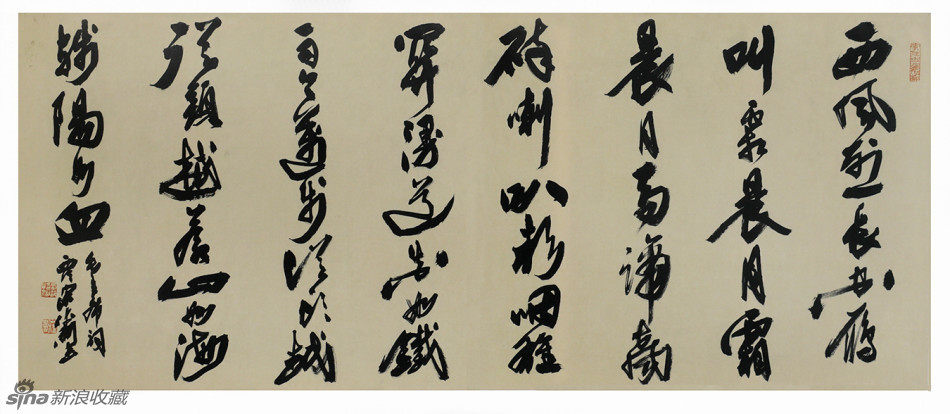 西風烈長空雁
叫霜晨月霜
晨月馬蹄聲
碎喇叭聲咽雄
關漫道真如鐵
而今邁步從頭越
從頭越蒼山如海
殘陽如血
毛主席詞
sina新浪收藏